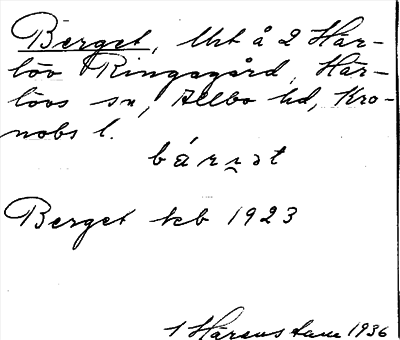 Berget, Urt å 2 Här-
löv Ringsgård, Här-
lövs sn, Allbo hd, Kro-
nobs l.
bárı̯ət
Berget kcb 1923
1 Härenstam 1936